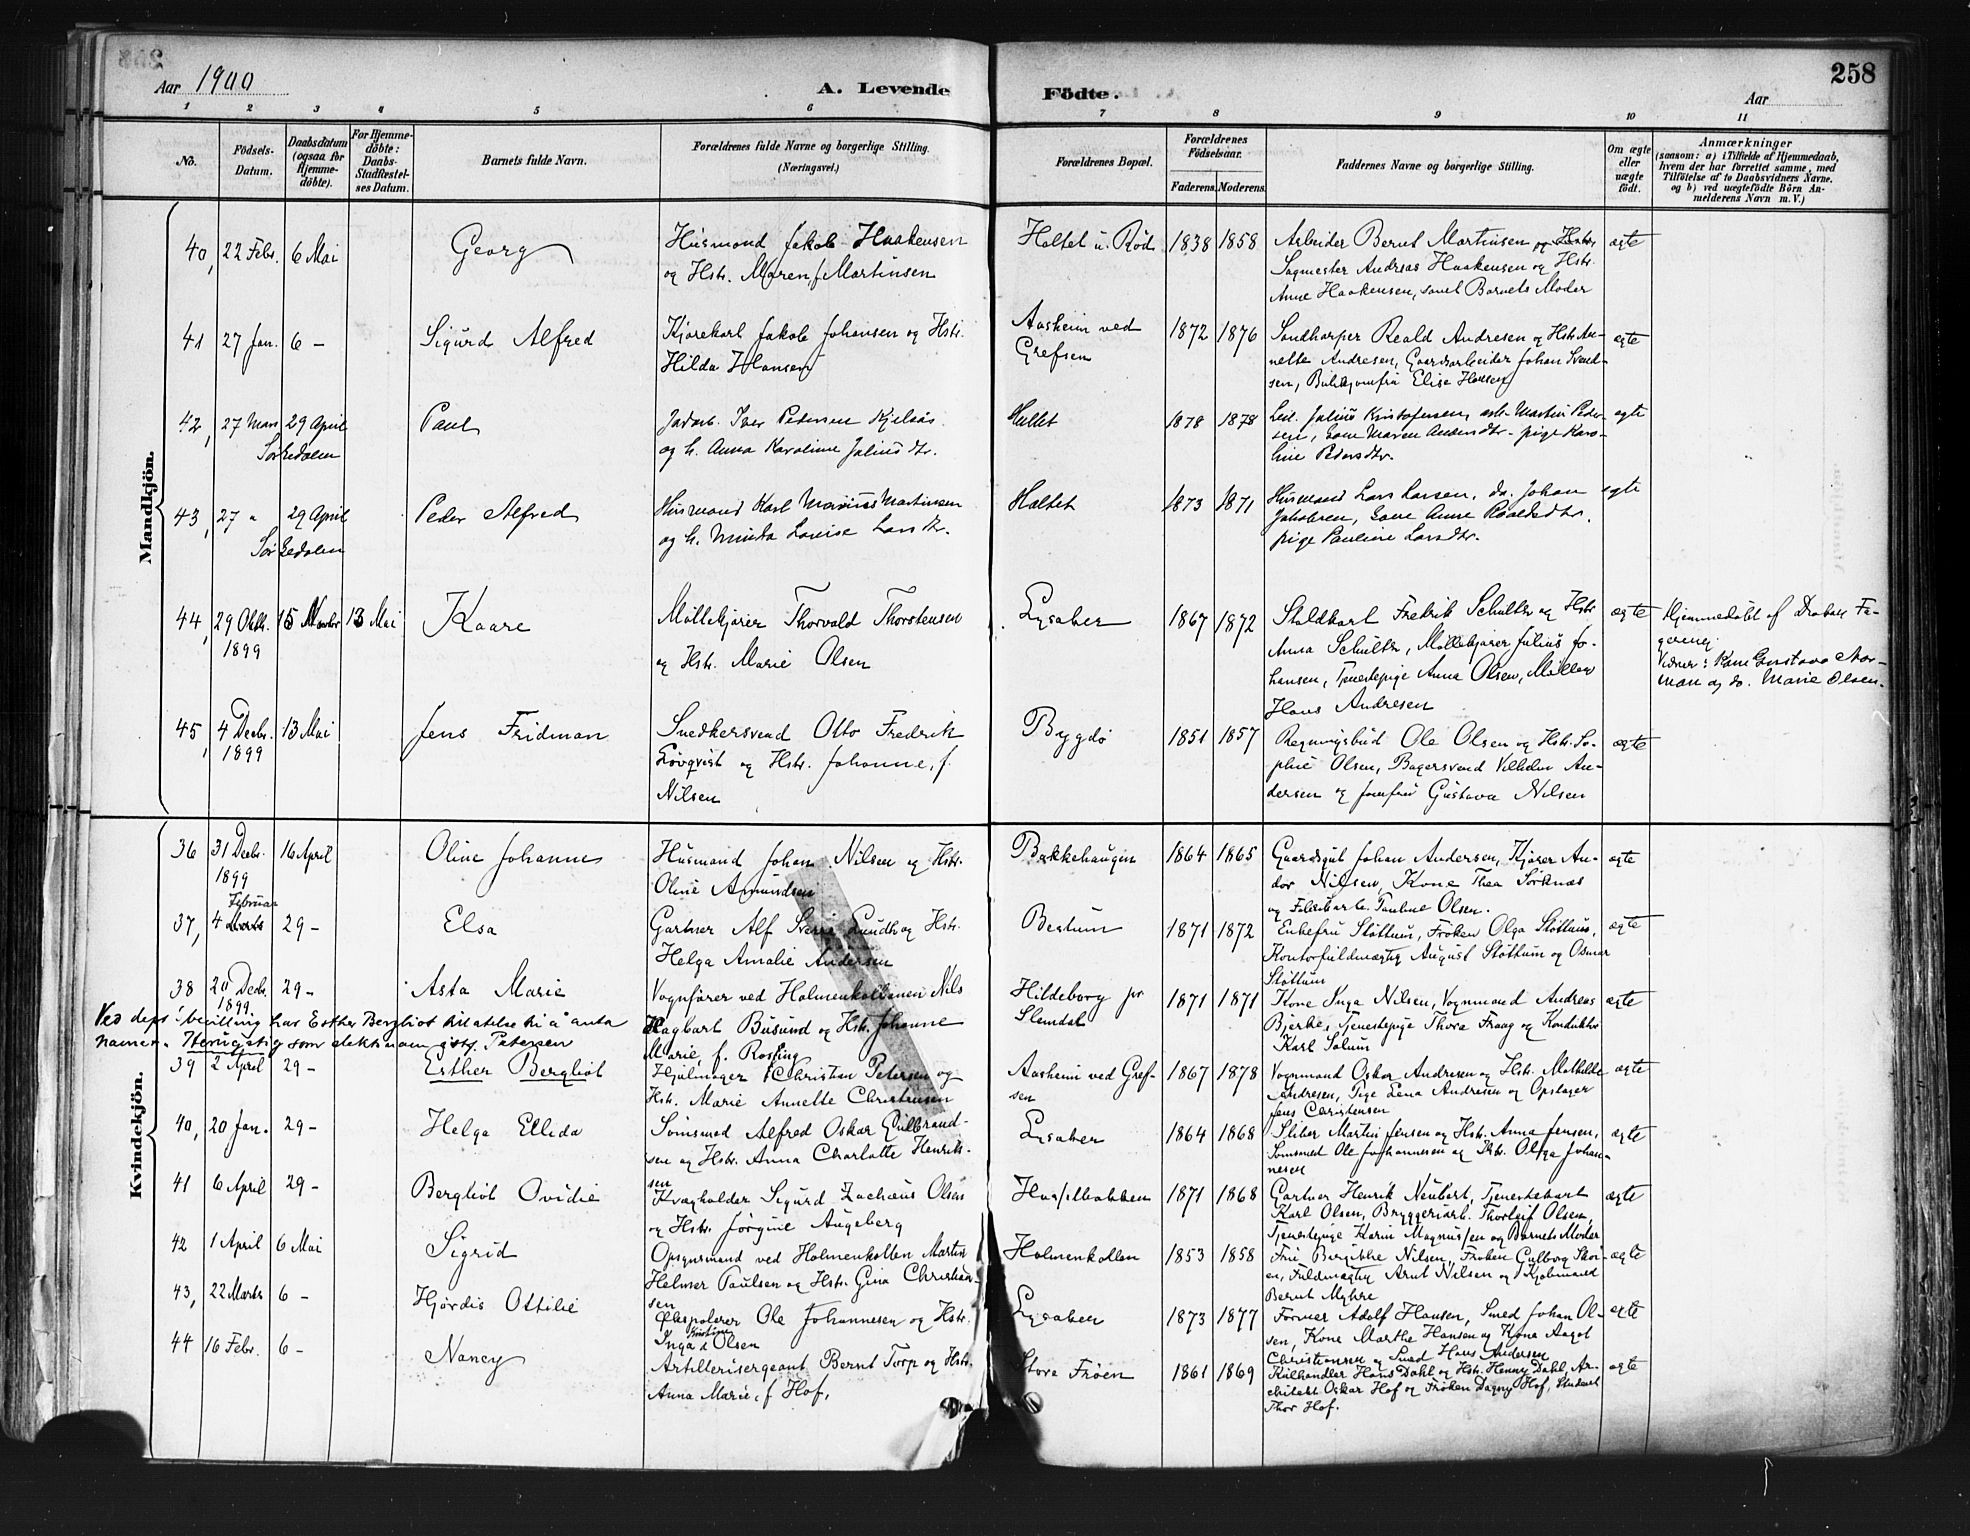 258
Aar 1900
A. Levende Födte.
Aar
1 2 3 4 5 6 7 8 9 10 11
No.
Födsels-Datum.
Daabsdatum (ogsaa for Hjemme-döbte).
For Hjemme-döbte: Daabs-Stadfæstel-ses Datum.
Barnets fulde Navn.
Forældrenes fulde Navne og borgerlige Stilling. (Næringsvei.)
Forældrenes Bopæl.
Forældrenes Födselsaar.
Faderens. Moderens.
Faddernes Navne og borgerlige Stilling.
Om ægte eller uægte födt.
Anmærkninger
(saasom: a) i Tilfælde af Hjemmedaab,
hvem der har forrettet samme, med
Tilföielse af to Daabsvidners Navne.
og b) ved uægtefödte Börn An-
melderens Navn m. V.)
Mandkjön.
40, 22 Febr. 6 Mai Georg
Husmand Jakob Haakensen
og Hstr. Maren, f. Martinsen
Holtet u. Rød 1838 1858
Arbeider Bernt Martinsen og Hstr.
Sagmester Andreas Haakensen og Hstr.
Anne Haakensen, samt Barnets Moder
ægte
41 27 Jan. 6 – Sigurd Alfred
Kjørekarl Jakob Johansen og Hstr.
Hilda Hansen
Aasheim ved
Grefsen
1872 1876
Reald Andresen og Hstr. An-
nette Andresen, Gaardsarbeider Johan Svend-
sen, Elise Hansen
ægte
42, 27 Mars 29 April Paul
Sørkedalen
Jordarb. Iver Pedersen Kjelsås
og h. Anna Karoline Juliusdtr.
Holtet 1878 1878
Julius Kristofersen, arb. Martin Peder-
sen, kone Maren Andersdtr. pige Karo-
line Pedersdtr.
ægte
43, 27 " 29 April Peder Alfred
Sørkedalen
Husmand Karl Marinius Martinsen
og h. Minda Lovise Larsdtr.
Holtet 1873 1871
Husmand Lars Larsen, do. Johan
Jakobsen, kone Anne Roaldsdtr.
pige Pauline Larsdtr.
ægte
44, 29 Oktb. 1899 15 Novbr 13 Mai Kaare
Møllekjører Thorvald Thorstensen
og Hstr. Marie Olsen
Lysaker 1867 1872
Staldkarl Fredrik Schultz og Hstr
Anna Schultz, Møllekjører Julius Jo-
hansen, Tjenestepige Anna Olsen, Møller
Hans Andresen
ægte
Hjemmedøbt af Fa-
gereng.
Vidner: Kone Gustava Nor-
man og do. Marie Olsen.
45, 4 Decbr. 1899 13 Mai Jens Fridman
Snedkersvend Otto Fredrik
Løvqvist og Hstr. Johanne, f.
Nilsen
Bygdø 1851 1857
Regningsbud Ole Olsen og Hstr. So-
phie Olsen, Bagersvend Vilhelm An-
dersen og Jomfru Gustava Nilsen
ægte
Kvindekjön.
36 31 Decbr. 1899 16 April Oline Johanne
Husmand Johan Nilsen og Hstr.
Oline Amundsen
Bakkehaugen 1864 1865
Gaardsgut Johan Andersen, Kjører An-
dor Nilsen, Kone Thea Sørknæs
og Pauline Olsen.
ægte
37, 4 Marts Februar 29 – Elsa
Gartner Alf Sverre Lundh og Hstr.
Helga Amalie Andersen
Bestum 1871 1872
Enkefru Støttum, Frøken Olga Støttum,
Kontorfuldmægtig August Støttum og Osmar
Støttum
ægte
38 20 Decbr. 1899. 29 – Asta Marie
Vognfører ved Holmenkolbanen Nils
Hagbart Busund og Hstr. Johanne
Marie, f. Rosting
Hildeborg pr
Slemdal
1871 1871
Kone Inga Nilsen, Vognmand Andreas
Bjerke, Tjenestepige Thora Fraag og Konduktør
Karl Solum
ægte
Ved depts bevilling har Esther Bergliot tillatelse til å anta
navnet Hennestig som slektsnavn istf. Petersen
39 2 April 29 – Esther Bergliot
Hjulmager Christian Petersen og
Hstr. Marie Annette Christensen
Aasheim ved Gref-
sen
1867 1878
Vognmand Oskar Andresen og Hstr. Mathilde
Andresen, Pige Lena Andresen og Opslager
Jens Christensen
ægte
40, 20 Jan. 29 – Helga Ellida
Sømsmed Alfred Oskar Gulbrand-
sen og Hstr. Anna Charlotte Henrik-
sen
Lysaker 1864 1868
Sliber Martin Jensen og Hstr. Anna Jensen,
Sømsmed Ole Johannesen og Hstr. Olga Johan-
nesen
ægte
41 6 April 29 – Bergliot Ovidie
Kvægholder Sigurd Zachæus Olsen
og Hstr. Jørgine Augeberg
Husselbakken 1871 1868
Gartner Henrik Neubert, Tjenestekarl
Karl Olsen, Bryggeriarb. Thorleif Olsen,
Tjenestepige Karin Magnussen og Barnets Moder
ægte
42 1 April 6 Mai Sigrid
Opsynsmand ved Holmenkollen Martin
Helmer Paulsen og Hstr. Gina Christian-
sen
Holmenkollen 1853 1858
Fru Bergitte Nilsen, Frøken Gulborg Skoi-
en, Fuldmægtig Arnt Nilsen og Kjøbmand
Bernt Myhre
ægte
43, 22 Marts 6 – Hjørdis Ottilie
Ølexpolerer Ole Johannesen og Hstr.
Inga Kristine Olsen
Lysaker 1873 1877
Former Adolf Hansen, Smed Johan Ol-
sen, Kone Marthe Hansen og Kone Aagot
Christiansen og Smed Hans Andersen
ægte
44 16 Febr. 6 – Nancy
Artillerisergeant Bernt Torp og Hstr.
Anna Marie, f. Hof,
Store Frøen 1861 1869
Kulhandler Hans Dahl og Hstr. Henny Dahl, Ar-
chitekt Oskar Hof og Frøken Dagny Hof, Student
Thor Hof.
ægte